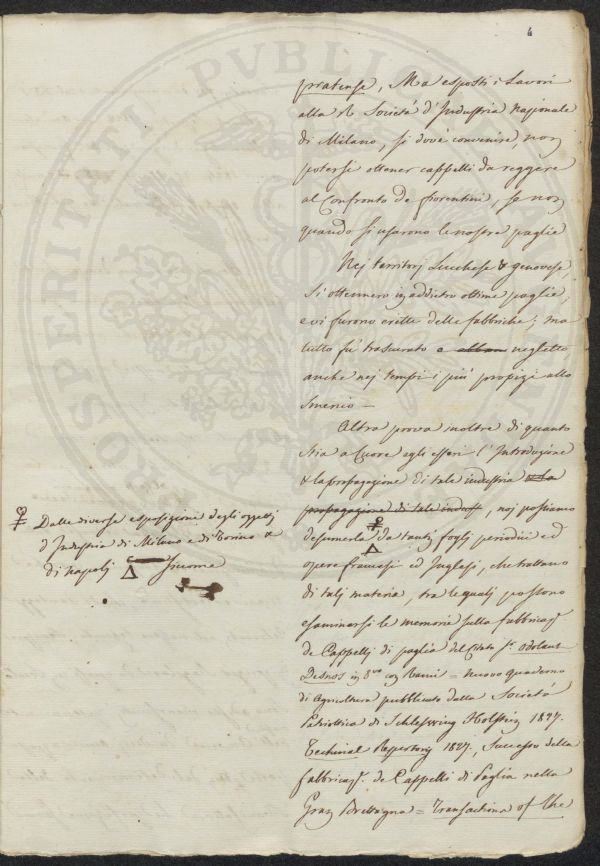 4
pratense, Ma esposti i Lavori
alla R. Societá d'Industria Nazionale
di Milano, si dové convenire, non
potersi ottener cappelli da reggere
al Confronto de fiorentini, se non
quando si usarono le nostre paglie
Nei territorj Lucchese & genovese,
si ottennero in addietro ottime paglie,
e vi furono erette delle fabbriche; ma
tutto fu trascurato e abban negletto
anche nei tempi i piu' propizi allo
smercio —
Altra prova inoltre di quanto
stia a Cuore agli esteri l'Introduzione
& la propagazione di tale industria e la
propagazione di tale indust, noi possiamo
desumerla da tanti fogli periodici ed
opere francesi ed Inglesi, che trattano
di tali materia, tra le quali possono
esaminarsi le memorie sulla fabbricaz.
de Cappelli di paglia del Sr. Odolant
Desnos in 8vo con Rami = nuovo quaderno
di Agricoltura pubblicato dalla Societá
Patriottica di Schleswing Holstein 1827.
Techinal Repertory 1827., Successo della
fabbricaz. de Cappelli di Paglia nella
Gran Brettagna = Transactions of the
Dalle diverse esposizioni degli oggetti
d'Industria di Milano e di Torino &
di Napoli Siccome
PROSPERITATI PUBLIC